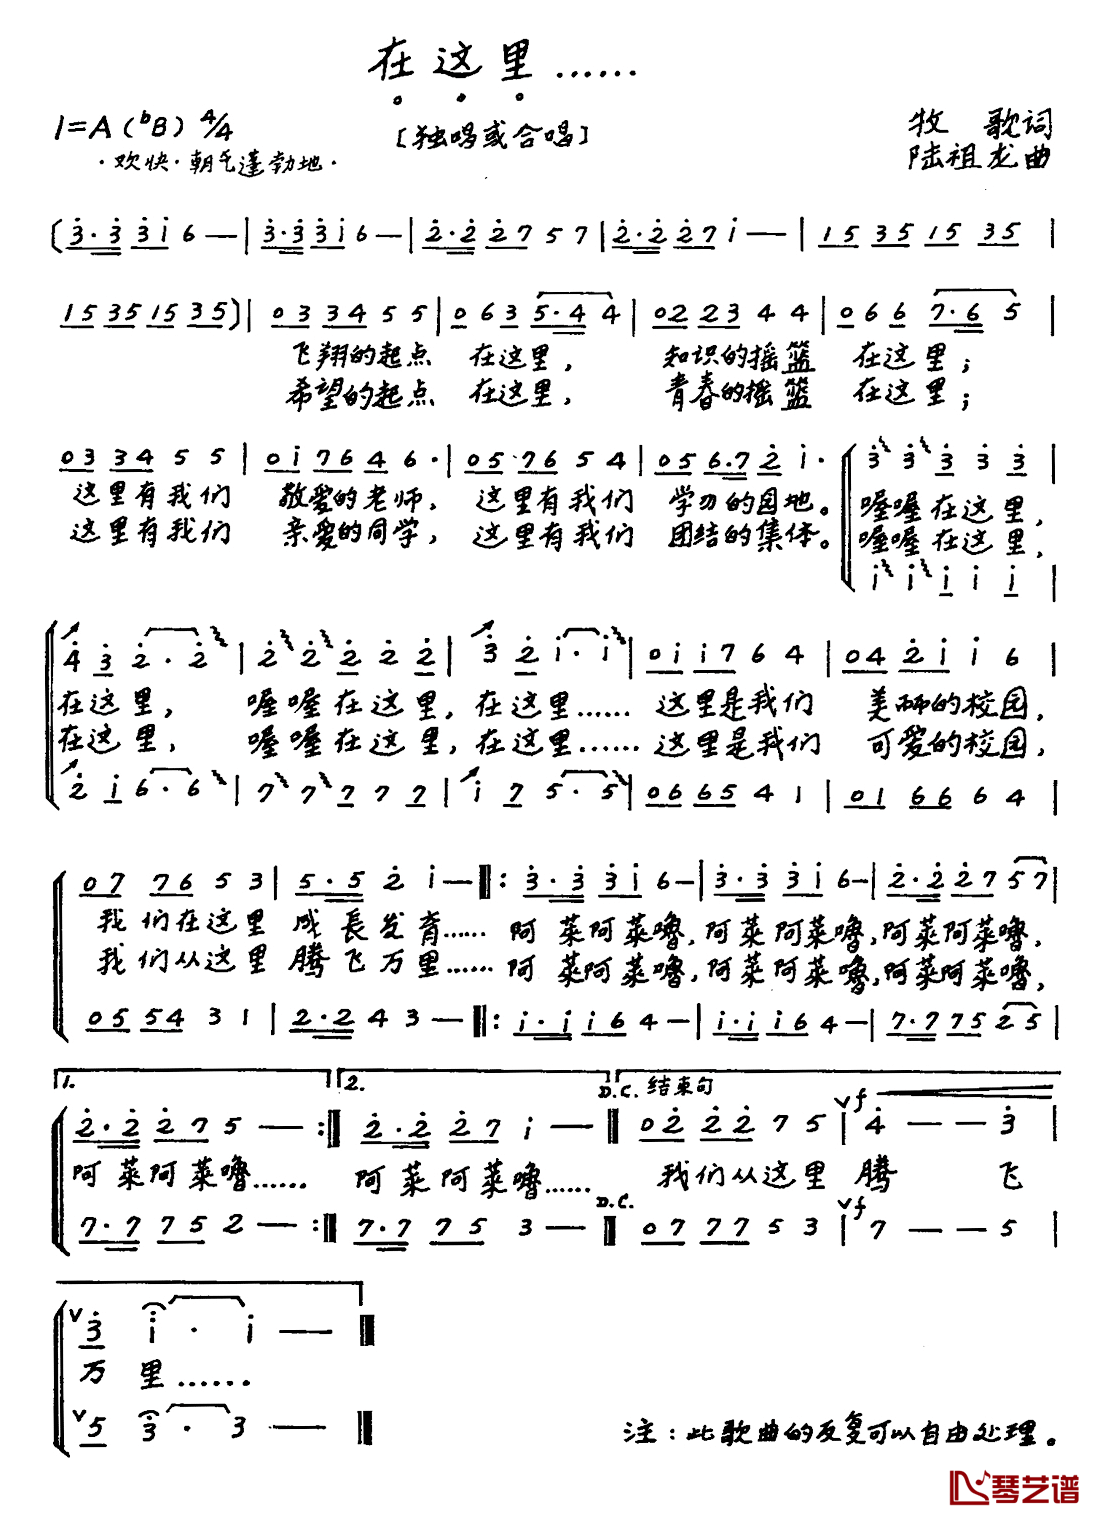 在这里……
1=A（ᵇB）4/4
［独唱或合唱］
·欢快·朝气蓬勃地·
牧 歌词
陆祖龙曲
（3·3 31 6 — | 3·3 31 6 — | 2·2 27 5 7 | 2·2 27 1 — | 15 35 15 35 |
15 35 15 35）| 03 34 5 5 | 0 6 3 5·4 4 | 02 23 4 4 | 0 6 6 7·6 5 |
飞翔的起点 在这里， 知识的摇篮 在这里；
希望的起点 在这里， 青春的摇篮 在这里；
03 34 5 5 | 01 76 4 6· | 05 76 5 4 | 05 6·7 2 1· | 3 3 3 3 3 |
这里有我们 敬爱的老师， 这里有我们 学习的园地。 喔喔在这里，
这里有我们 亲爱的同学， 这里有我们 团结的集体。 喔喔在这里，
1 1 1 1 1 |
4 3 2·2 | 2 2 2 2 2 | 3 2 1·1 | 01 17 6 4 | 04 21 1 6 |
在这里， 喔喔在这里，在这里…… 这里是我们 美丽的校园，
在这里， 喔喔在这里，在这里…… 这里是我们 可爱的校园，
2 1 6·6 | 7 7 7 7 7 | 1 7 5·5 | 06 65 4 1 | 01 66 6 4 |
07 76 5 3 | 5·5 2 1 — ‖: 3·3 31 6 — | 3·3 31 6 — | 2·2 27 57 |
我们在这里 成長发育…… 阿莱阿莱噜，阿莱阿莱噜，阿莱阿莱噜，
我们从这里 腾飞万里…… 阿莱阿莱噜，阿莱阿莱噜，阿莱阿莱噜，
05 54 3 1 | 2·2 4 3 — ‖: 1·1 16 4 — | 1·1 16 4 — | 7·7 75 25 |
1. 2. D.C. 结束句
2·2 27 5 — :‖ 2·2 27 1 — ‖ 02 22 7 5 | ∨f 4 — — 3 |
阿莱阿莱噜…… 阿莱阿莱噜…… 我们从这里 腾 飞
D.C.
7·7 75 2 — :‖ 7·7 75 3 — ‖ 07 77 5 3 | ∨f 7 — — 5 |
∨3 1 · 1 — ‖
万 里……
∨5 3 · 3 — ‖
注：此歌曲的反复可以自由处理。
琴艺谱